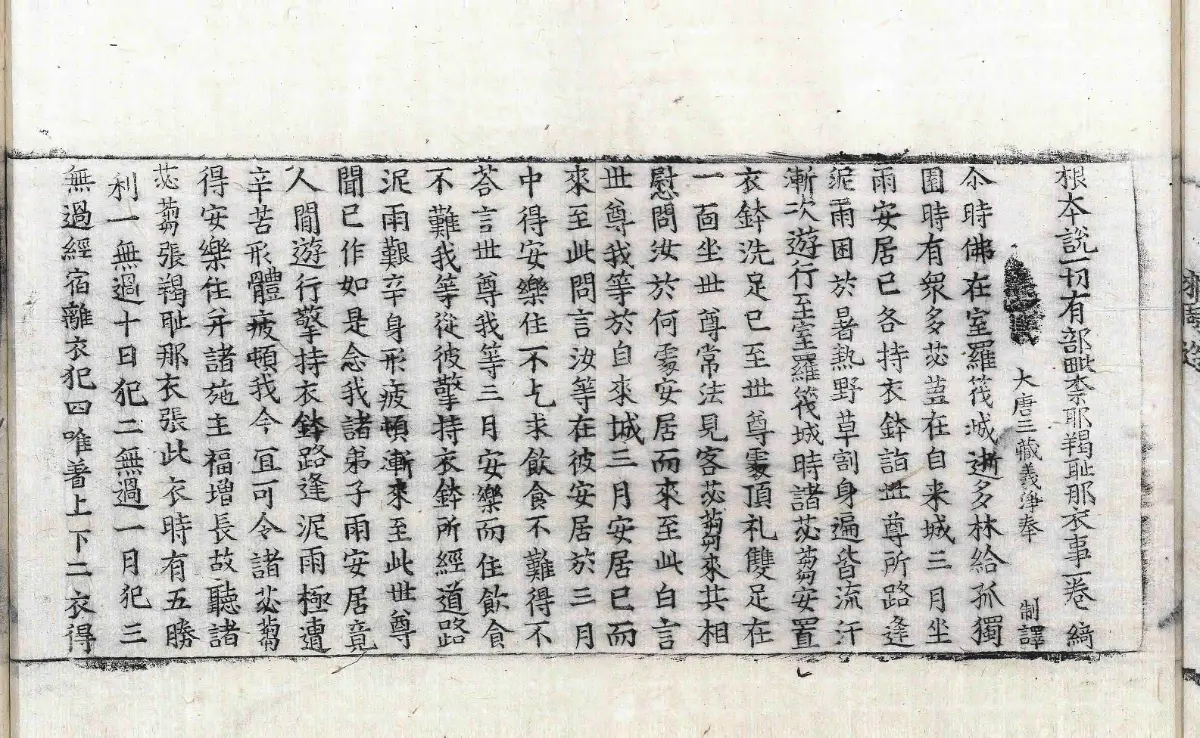 根本說一切有部毗柰耶羯耻那衣事一卷 綺
大唐三藏義淨奉 制譯
尒時佛在室羅筏城逝多林給孤獨
園時有衆多苾蒭在自来城三月坐
雨安居已各持衣鉢詣世尊所路逢
泥雨困於暑熱野草割身遍皆流汗
漸次遊行至室羅筏城時諸苾蒭安置
衣鉢洗足已至世尊處頂礼雙足在
一面坐世尊常法見客苾蒭來共相
慰問汝於何處安居而來至此白言
世尊我等於自來城三月安居已而
來至此問言汝等在彼安居於三月
中得安樂住不乞求飲食不難得不
荅言世尊我等三月安樂而住飲食
不難我等從彼擎持衣鉢所經道路
泥雨艱辛身形疲頓漸來至此世尊
聞已作如是念我諸弟子雨安居竟
人閒遊行擎持衣鉢路逢泥雨極遭
辛苦形體疲頓我今冝可令諸苾蒭
得安樂住并諸施主福增長故聽諸
苾蒭張羯耻那衣張此衣時有五勝
利一無過十日犯二無過一月犯三
無過經宿離衣犯四唯著上下二衣得